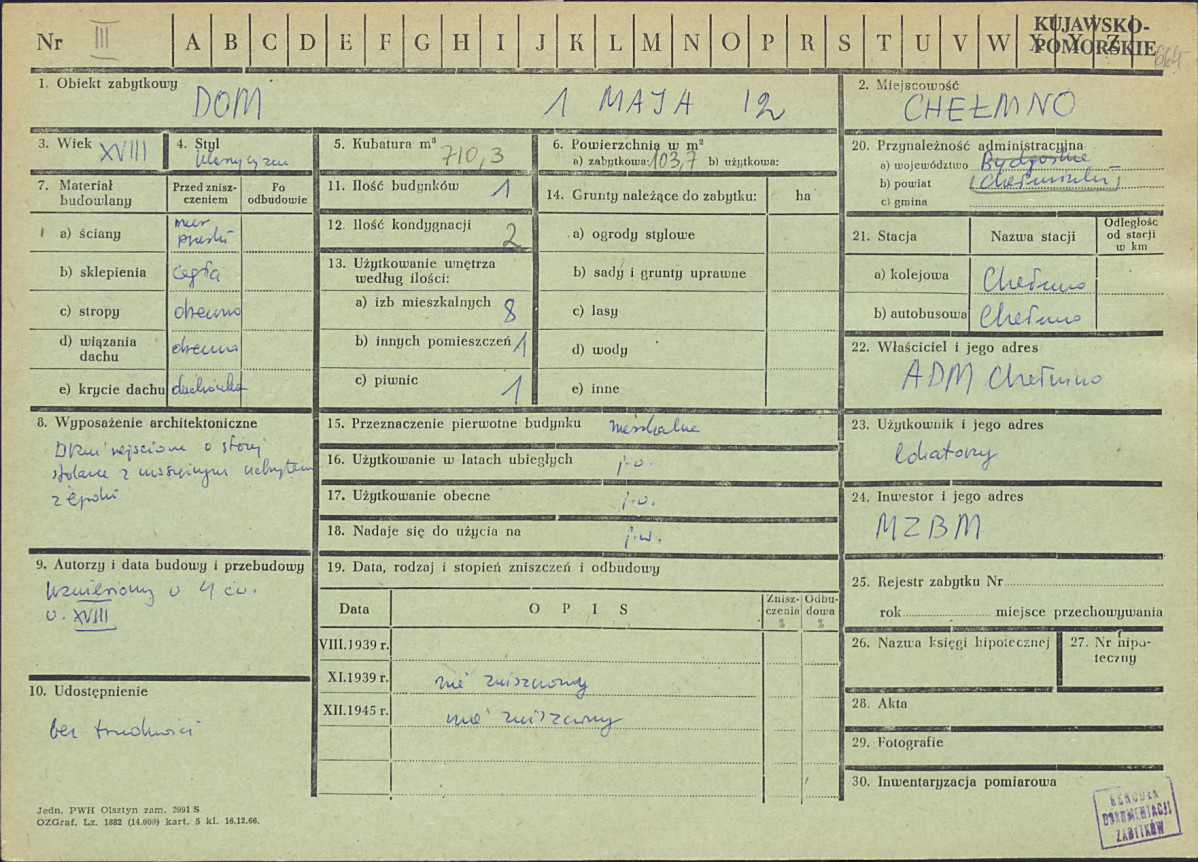 Nr III A B C D E F G H I J K L M N O P R S T U V W X Y Z
KUJAWSKO-
POMORSKIE
664
1. Obiekt zabytkowy
DOM 1 MAJA 12
2. Miejscowość
CHEŁMNO
3. Wiek XVIII
4. Styl
klasycyzm
5. Kubatura m³
710,3
6. Powierzchnia w m²
a) zabytkowa: 103,7 b) użytkowa:
20. Przynależność administracyjna
a) województwo Bydgoskie
b) powiat (Chełmiński)
c) gmina
7. Materiał
budowlany
Przed znisz-
czeniem
Po
odbudowie
a) ściany
mur
pruski
b) sklepienia cegła
c) stropy drewno
d) wiązania
dachu
drewno
e) krycie dachu dachówka
11. Ilość budynków 1
12. Ilość kondygnacji
2
13. Użytkowanie wnętrza
według ilości:
a) izb mieszkalnych 8
b) innych pomieszczeń 1
c) piwnic 1
14. Grunty należące do zabytku: ha
a) ogrody stylowe
b) sady i grunty uprawne
c) lasy
d) wody
e) inne
21. Stacja
Nazwa stacji
Odległość
od stacji
w km
a) kolejowa Chełmno
b) autobusowa Chełmno
22. Właściciel i jego adres
ADM Chełmno
8. Wyposażenie architektoniczne
Drzwi wejściowe o
z uchwytem
z epoki
15. Przeznaczenie pierwotne budynku mieszkalne
16. Użytkowanie w latach ubiegłych j.w.
17. Użytkowanie obecne j.w.
18. Nadaje się do użycia na j.w.
23. Użytkownik i jego adres
lokatorzy
24. Inwestor i jego adres
MZBM
9. Autorzy i data budowy i przebudowy
wzniesiony w 4 ćw.
w. XVIII
19. Data, rodzaj i stopień zniszczeń i odbudowy
Data
O P I S
Znisz-
czenia
%
Odbu-
dowa
%
VIII.1939 r.
XI.1939 r. nie zniszczony
XII.1945 r. nie zniszczony
25. Rejestr zabytku Nr
rok miejsce przechowywania
26. Nazwa księgi hipotecznej
27. Nr hipo-
teczny
10. Udostępnienie
bez trudności
28. Akta
29. Fotografie
30. Inwentaryzacja pomiarowa
OŚRODEK
DOKUMENTACJI
ZABYTKÓW
Jedn. PWH Olsztyn zam. 2991 S
OZGraf. Lz. 1882 (14.000) kart. 5 kl. 16.12.66.